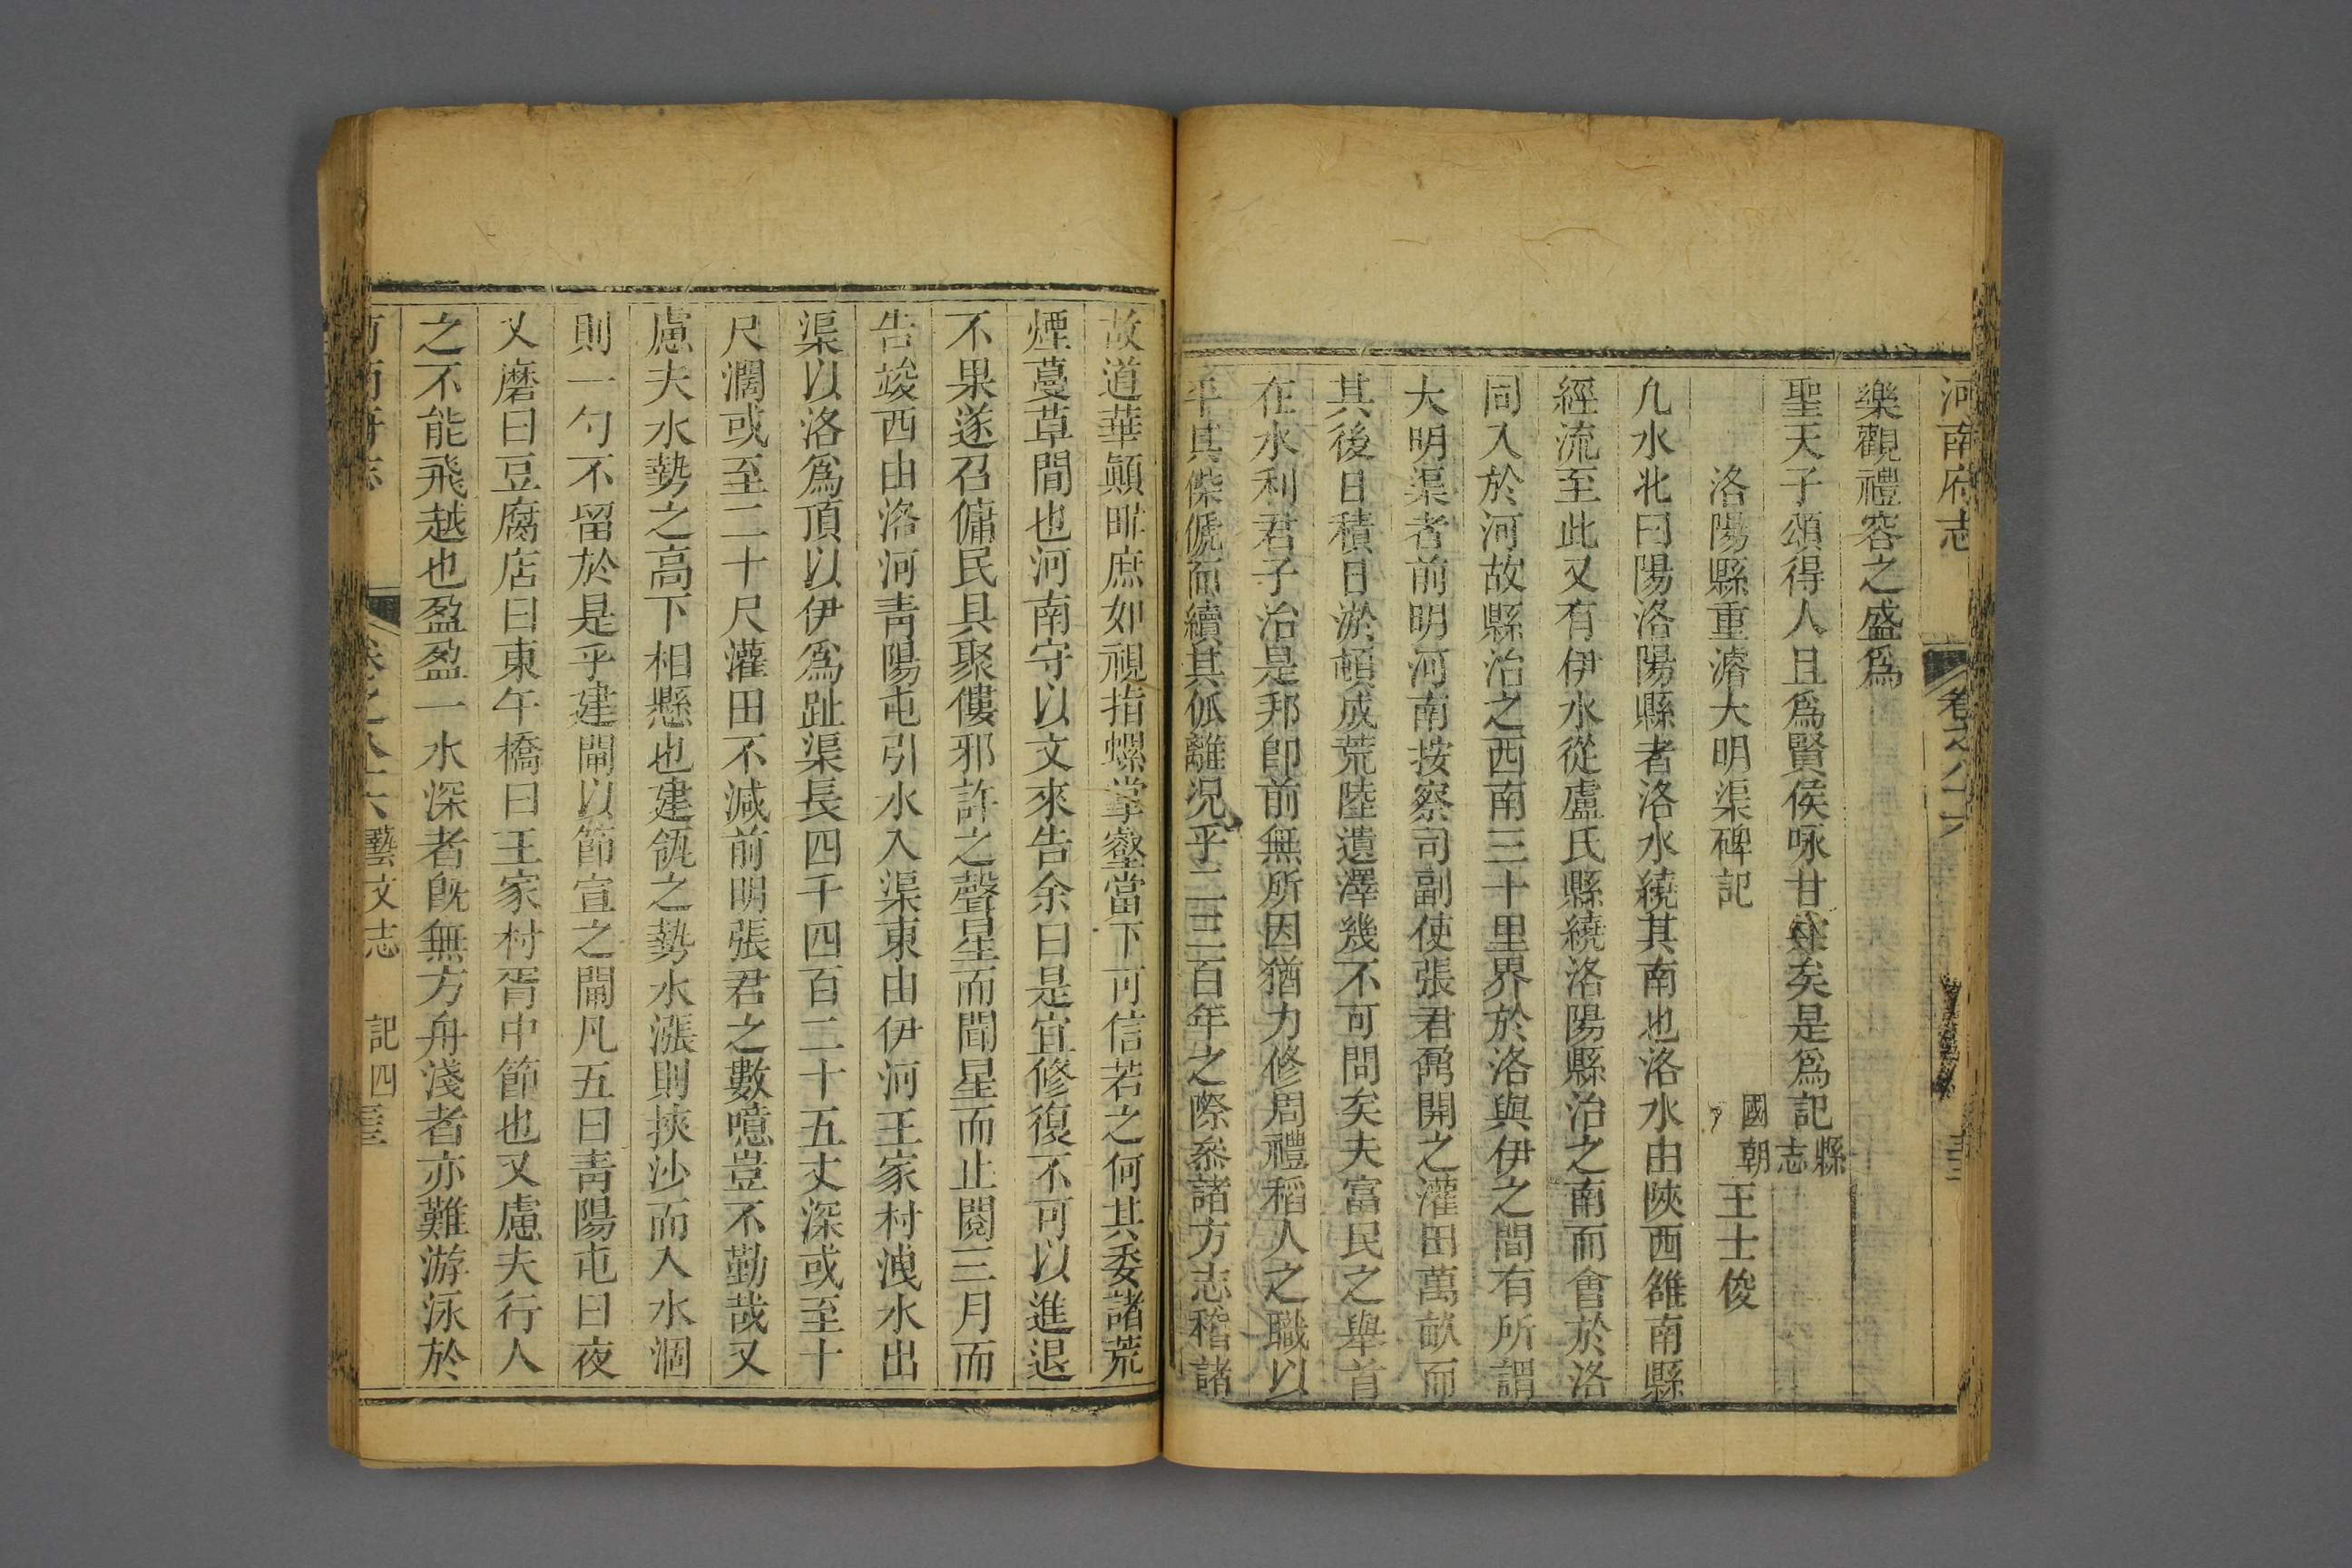 河南府志 卷之八十六
樂觀禮容之盛爲
聖天子頌得人且爲賢侯咏甘棠矣是爲記縣志
洛陽縣重濬大明渠碑記 國朝王士俊
凡水北曰陽洛陽縣者洛水繞其南也洛水由陝西雒南縣
經流至此又有伊水從盧氏縣繞洛陽縣治之南而會於洛
同入於河故縣治之西南三十里界於洛與伊之間有所謂
大明渠者前明河南按察司副使張君鼐開之灌田萬畝而
其後日積日淤頓成荒陸遺澤幾不可問矣夫富民之舉首
在水利君子治是邦卽前無所因猶力修周禮稻人之職以
平其傑傂而續其佤離況乎二三百年之際叅諸方志稽諸
故道華顚眸庶如視指螺掌壑當下可信若之何其委諸荒
煙蔓草間也河南守以文來告余曰是宜修復不可以進退
不果遂召傭民具聚僂邪許之聲星而聞星而止閱三月而
告竣西由洛河靑陽屯引水入渠東由伊河王家村洩水出
渠以洛爲頂以伊爲趾渠長四千四百二十五丈深或至十
尺濶或至二十尺灌田不減前明張君之數噫豈不勤哉又
慮夫水勢之高下相懸也建瓴之勢水漲則挾沙而入水涸
則一勺不留於是乎建閘以節宣之閘凡五曰靑陽屯曰夜
乂磨曰豆腐店曰東午橋曰王家村胥中節也又慮夫行人
之不能飛越也盈盈一水深者旣無方舟淺者亦難游泳於
河南府志 卷之八十六 藝文志 記四